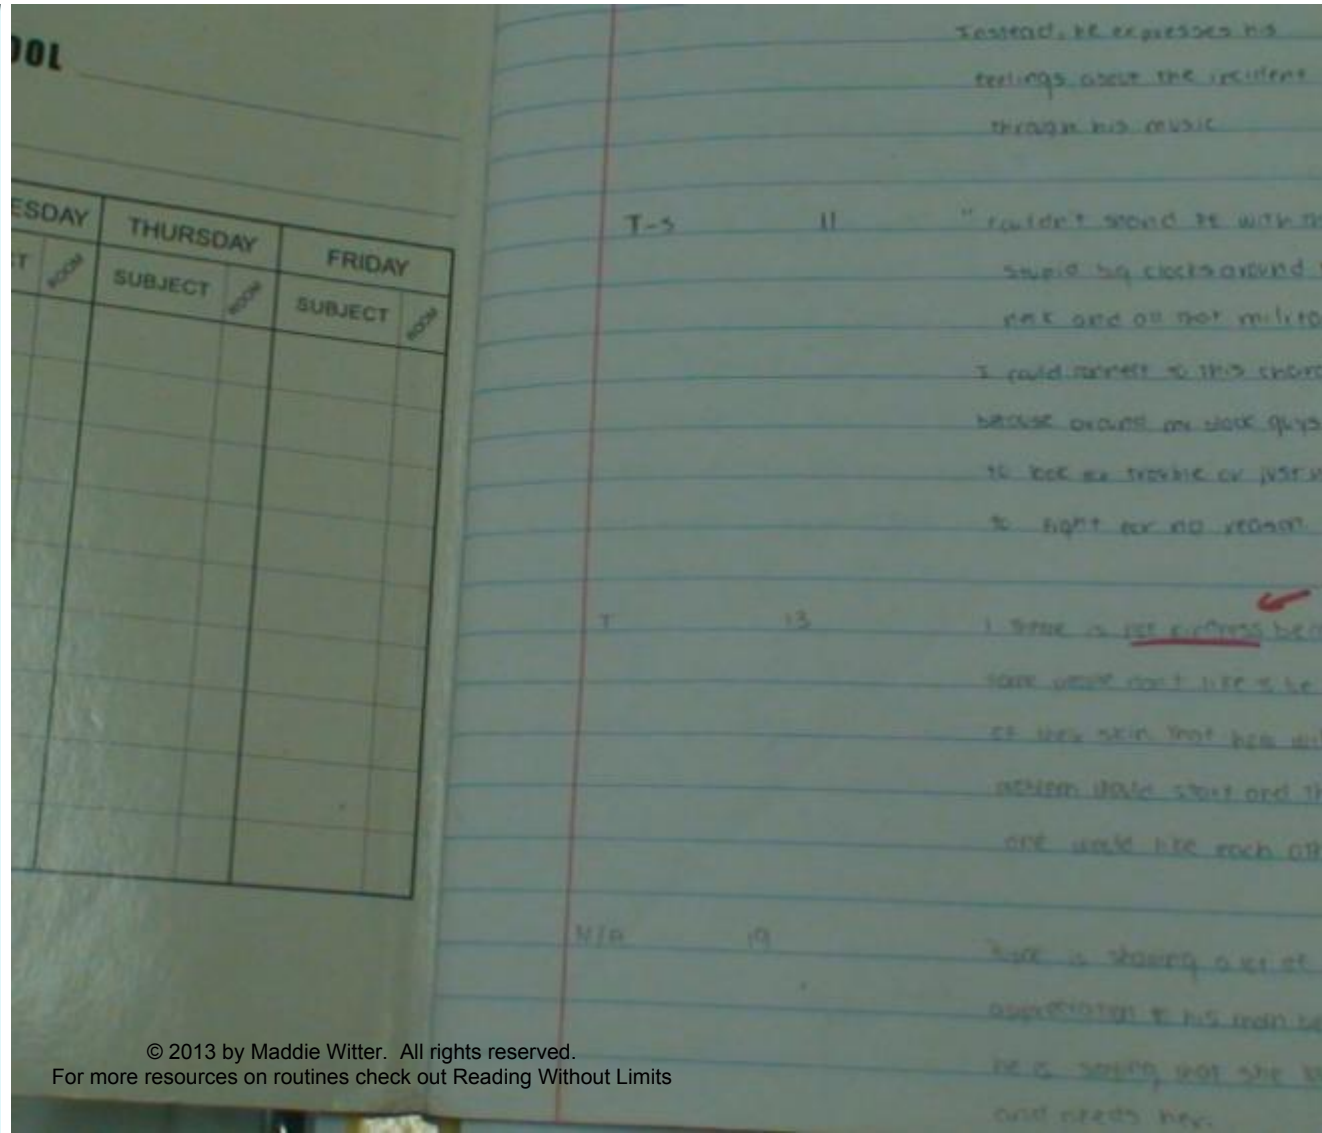 OOL
ESDAY
THURSDAY
FRIDAY
CT ROOM
SUBJECT ROOM
SUBJECT ROOM
Instead, he expresses his
feelings about the incident
through his music
T-S 11 "couldn't stand it with
stupid big clocks around
neck and all that
I could connect to this
because around my block guys
to look for trouble or just
to fight for no reason
T 13 I is
some people don't like to be
of their skin that
problem would start and
one would like each
N/A 19 is showing a lot of
appreciation to his mom
he is saying that she
and needs her.
© 2013 by Maddie Witter. All rights reserved.
For more resources on routines check out Reading Without Limits